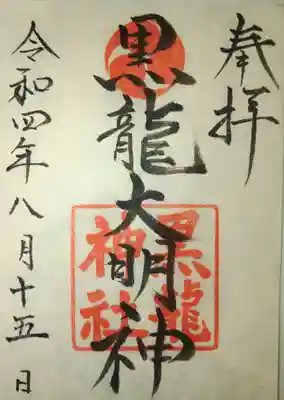 奉拝
黒龍大明神
黒龍神社
令和四年八月十五日